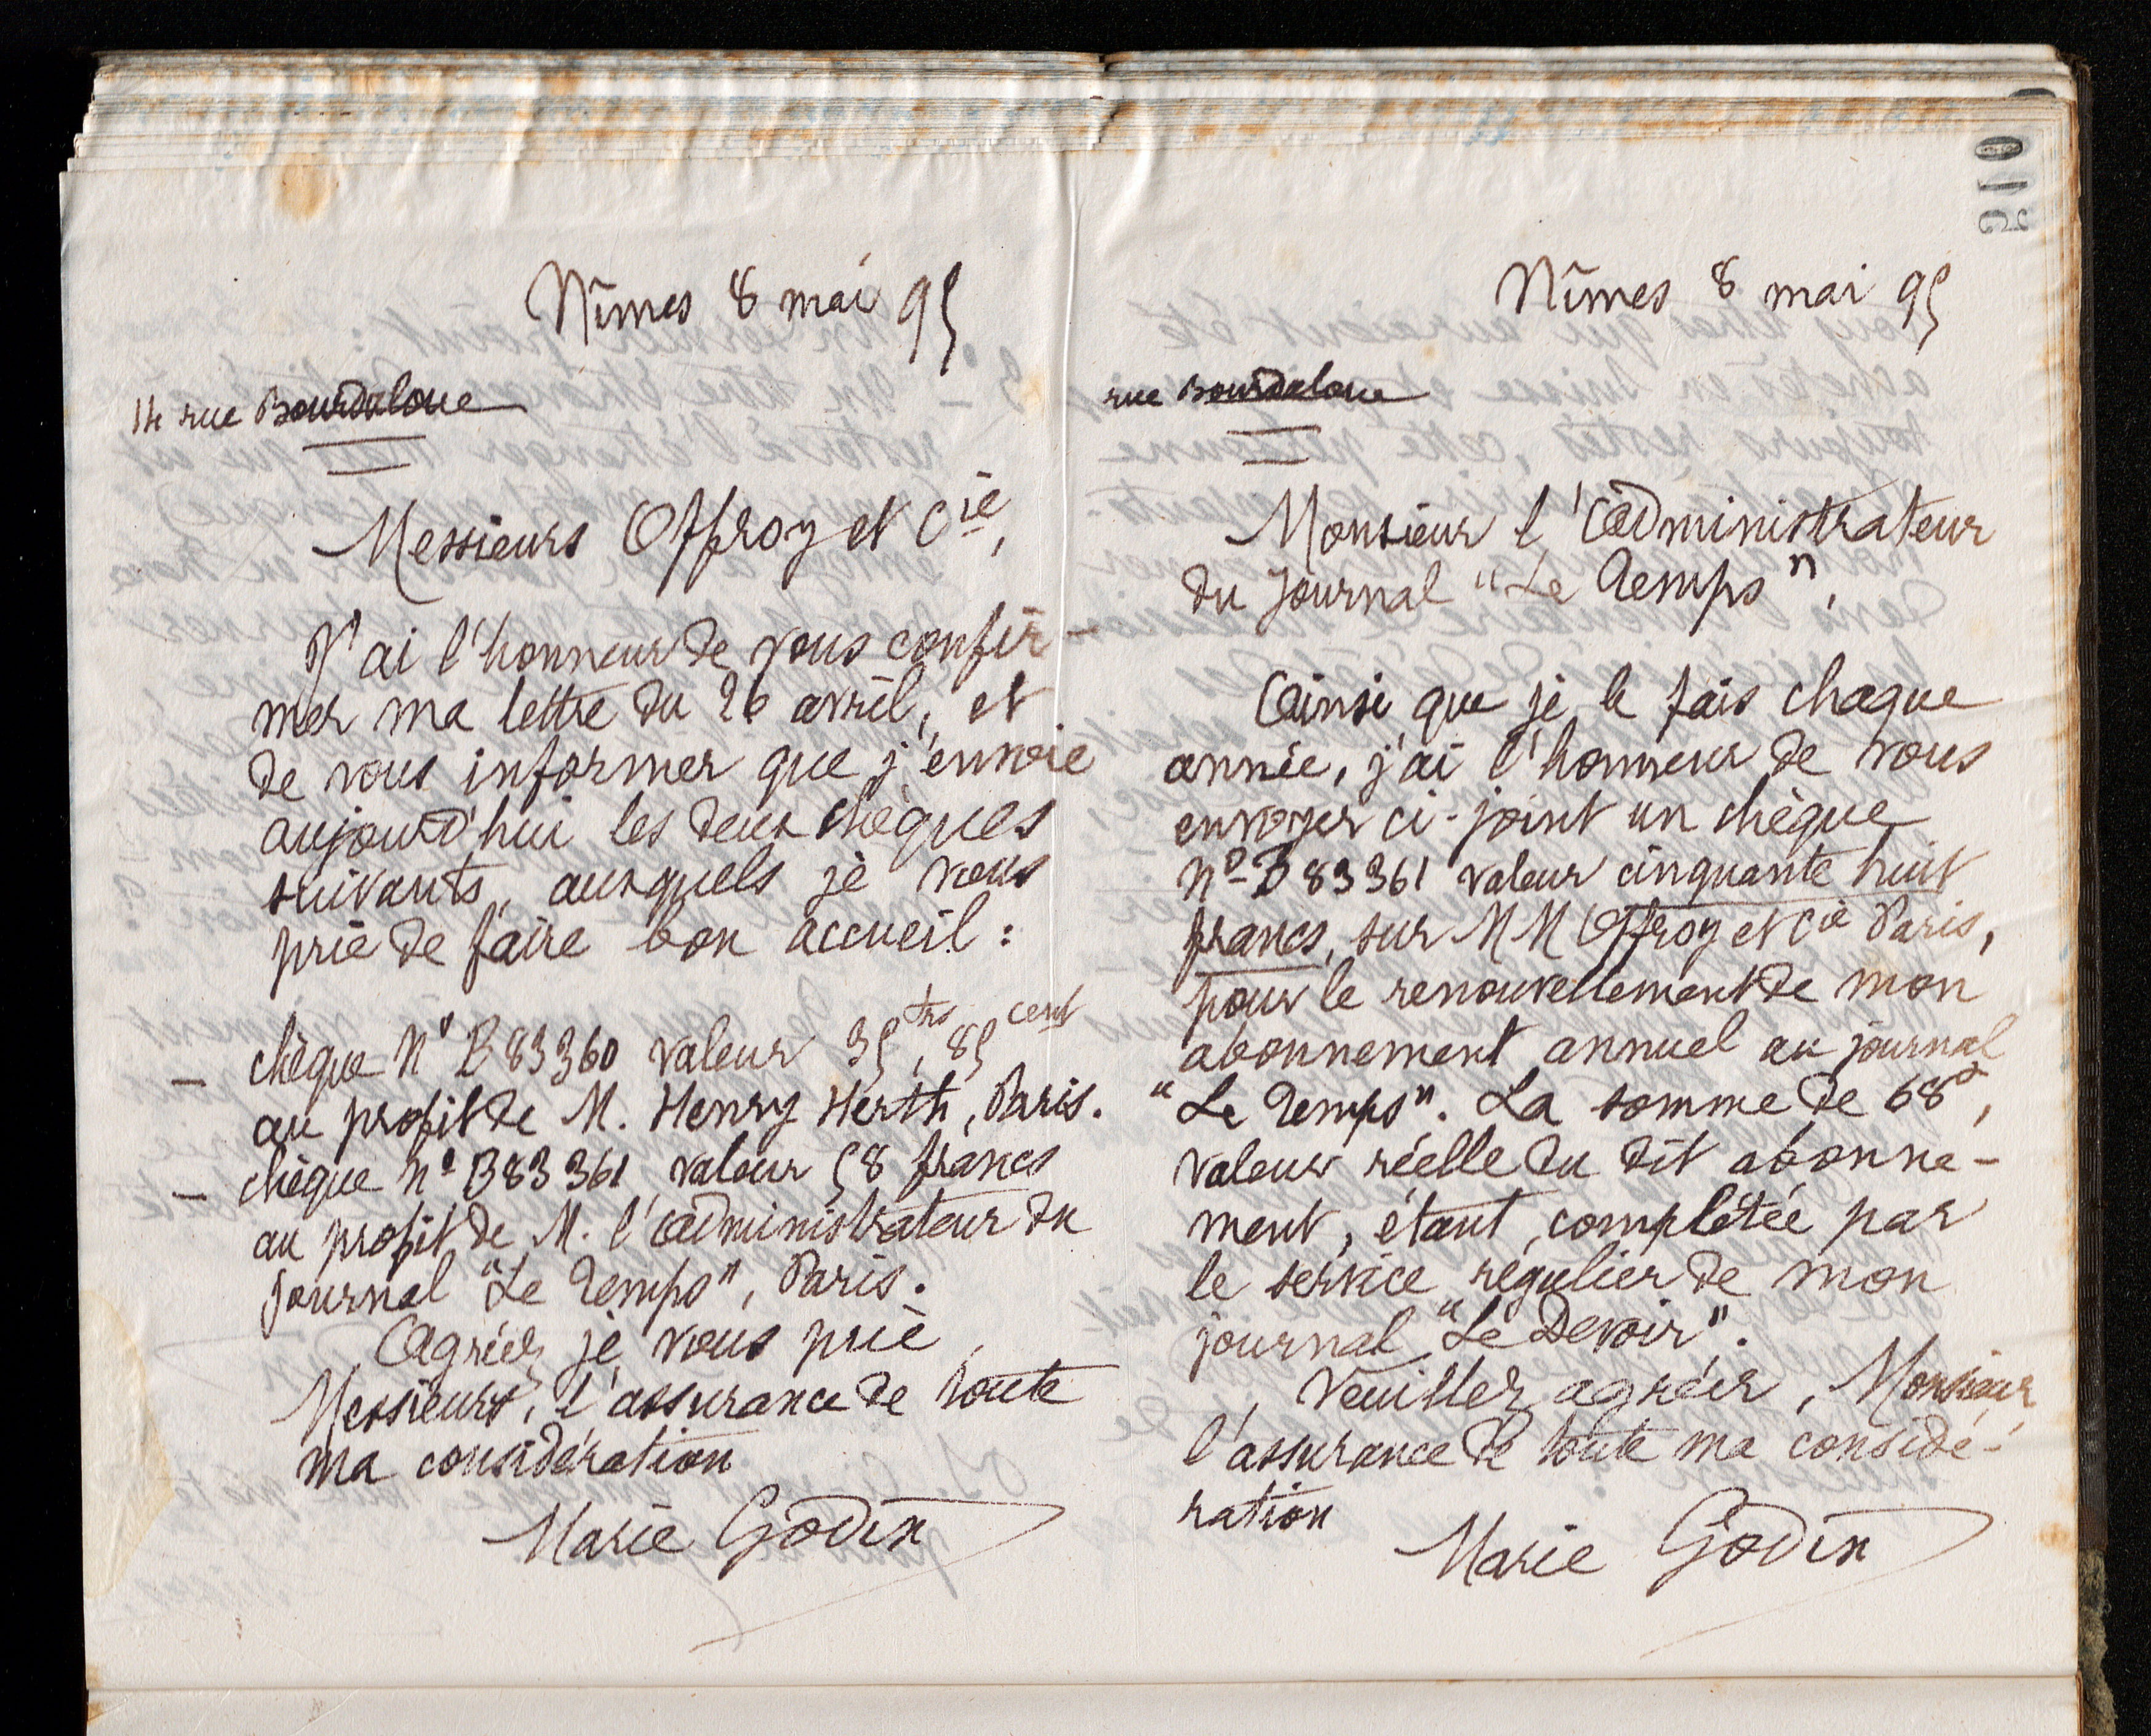 Nîmes 8 mai 95
14 rue Bourdaloue
Messieurs Offroy et Cie,
J'ai l'honneur de vous confir-
mer ma lettre du 26 avril, et
de vous informer que j'envoie
aujourd'hui les deux chèques
suivants, auxquels je vous
prie de faire bon accueil :
— chèque No B83360 valeur 35frs, 85cent
au profit de M. Henry Herth, Paris.
— chèque No B83361 valeur 58 francs
au profit de M. l'administrateur du
Journal "Le Temps", Paris.
Agréez, je vous prie
Messieurs, l'assurance de toute
ma considération
Marie Godin
Nîmes 8 mai 95
rue Bourdaloue
Monsieur l'administrateur
du Journal "Le Temps",
Ainsi que je le fais chaque
année, j'ai l'honneur de vous
envoyer ci-joint un chèque
No B83361 valeur cinquante huit
francs, sur MM Offroy et Cie Paris,
pour le renouvellement de mon
abonnement annuel au journal
"Le Temps". La somme de 68f,
valeur réelle du dit abonne-
ment, étant complétée par
le service régulier de mon
journal "Le Devoir".
Veuillez agréer, Monsieur,
l'assurance de toute ma considé-
ration
Marie Godin